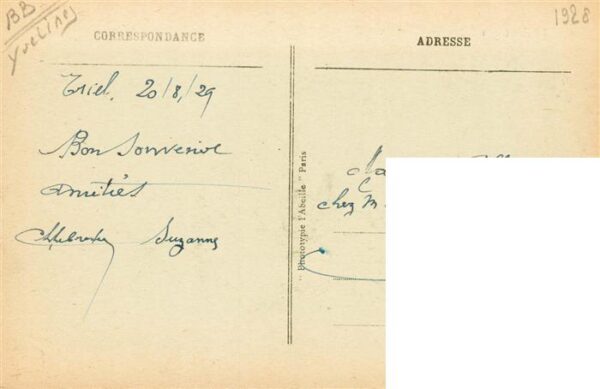 BB
Yvelines
1928
CORRESPONDANCE
ADRESSE
Triel, 20/8/29
Bon Souvenir
Amitiés
Suzanne
" Phototypie l'Abeille " Paris
chez M